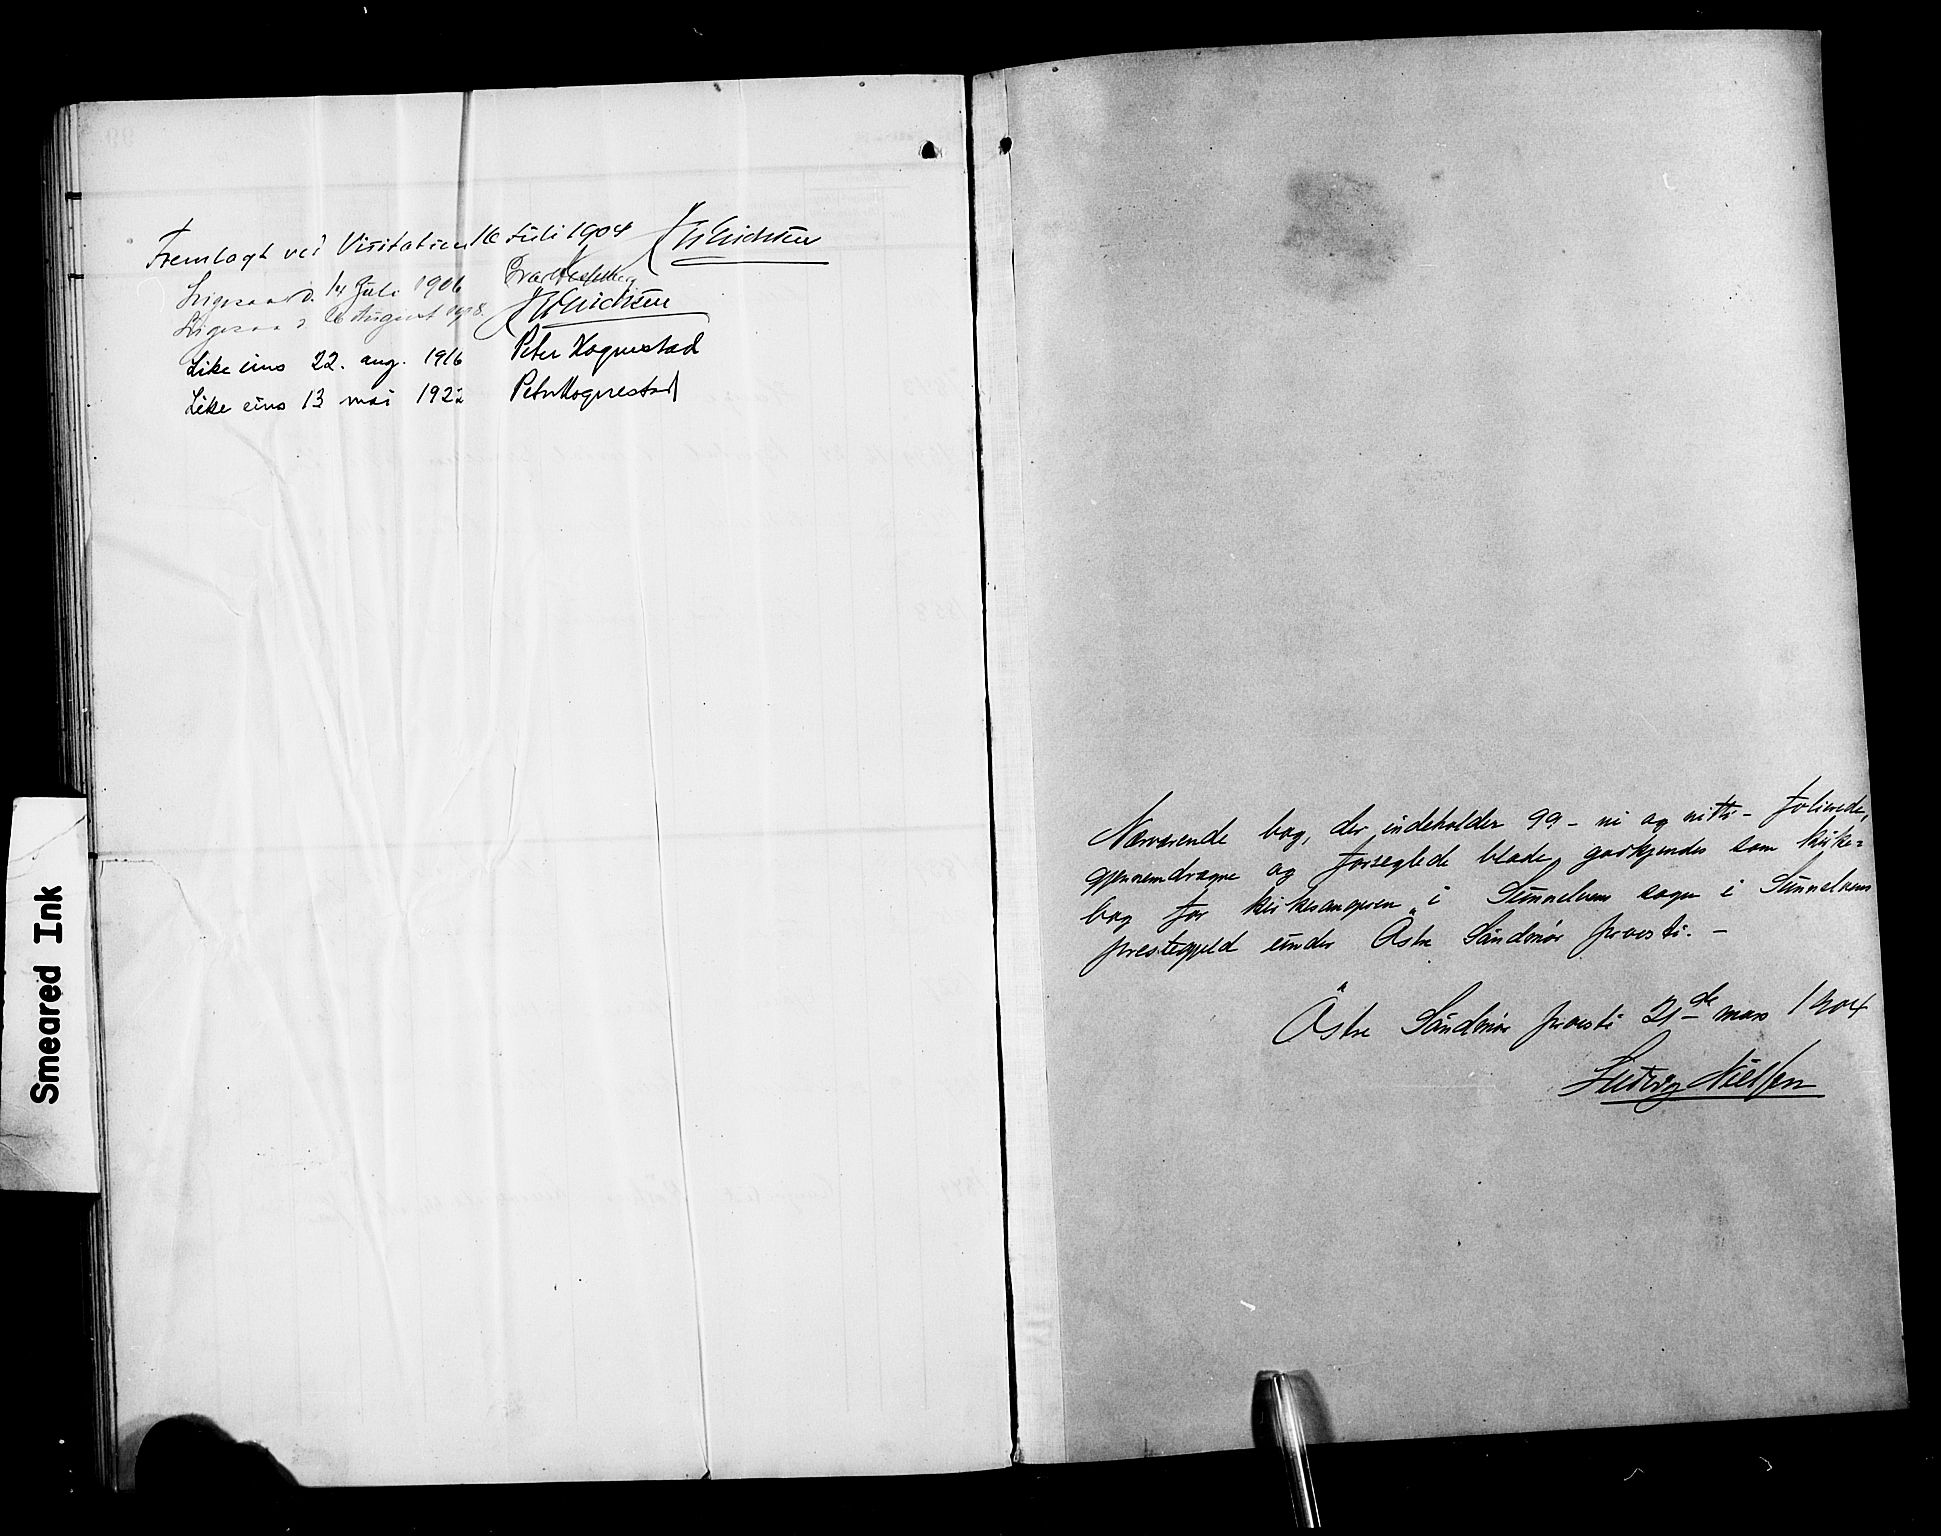 Fremlagt ved Visitation 16 Juli 1904 J W Erichsen
Ligesaa d. 14 Juli 1906
Ligesaa d. 16 August 1908. J W Erichsen
Like eins 22. aug. 1916 Peter Hognestad
Like eins 13 mai 1922 Peter Hognestad
Smeared Ink
Nærværende bog, der indeholder 99 - ni og nitti - folierede,
gjennemdragne og forseglede blade, godkjendes som kirke=
bog for kirkesangeren i Sunnelven sogn i Sunnelvens
prestegjeld under Østre Søndmør provsti. -
Østre Søndmør provsti 21de mars 1904
Ludvig Nielsen